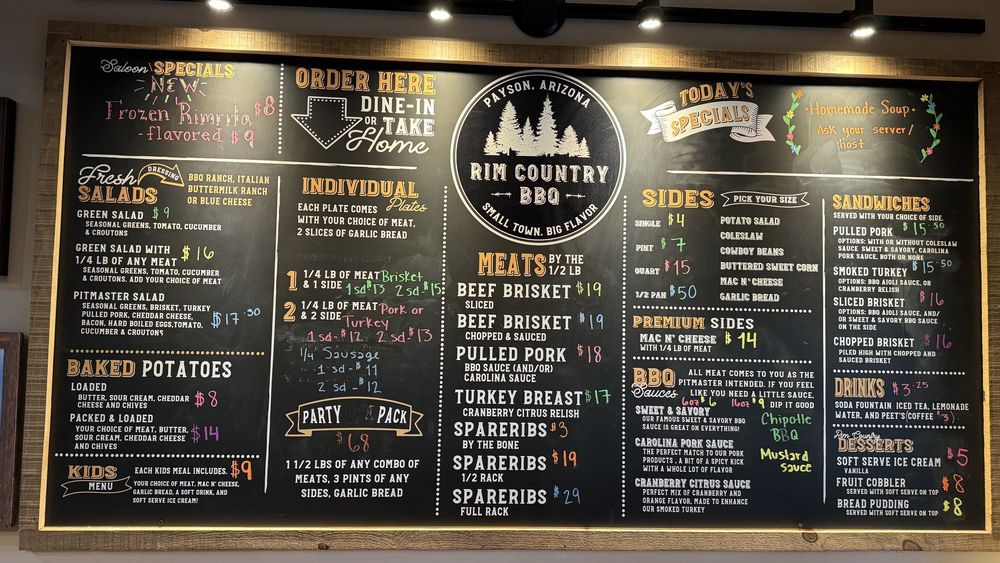 Saloon SPECIALS
NEW
Frozen Rimrita $8
-flavored $9
ORDER HERE
DINE-IN
OR TAKE
Home
PAYSON, ARIZONA
RIM COUNTRY
BBQ
SMALL TOWN. BIG FLAVOR
TODAY'S
SPECIALS
Homemade Soup
Ask your server/
host
Fresh
SALADS
DRESSING
BBQ RANCH, ITALIAN
BUTTERMILK RANCH
OR BLUE CHEESE
GREEN SALAD $9
SEASONAL GREENS, TOMATO, CUCUMBER
& CROUTONS
GREEN SALAD WITH
1/4 LB OF ANY MEAT $16
SEASONAL GREENS, TOMATO, CUCUMBER
& CROUTONS. ADD YOUR CHOICE OF MEAT
PITMASTER SALAD
SEASONAL GREENS, BRISKET, TURKEY
PULLED PORK, CHEDDAR CHEESE,
BACON, HARD BOILED EGGS, TOMATO,
CUCUMBER & CROUTONS
$17.50
BAKED POTATOES
LOADED
BUTTER, SOUR CREAM, CHEDDAR
CHEESE AND CHIVES
$8
PACKED & LOADED
YOUR CHOICE OF MEAT, BUTTER,
SOUR CREAM, CHEDDAR CHEESE
AND CHIVES
$14
KIDS
MENU
EACH KIDS MEAL INCLUDES: $9
YOUR CHOICE OF MEAT, MAC N' CHEESE,
GARLIC BREAD, A SOFT DRINK, AND
SOFT SERVE ICE CREAM!
INDIVIDUAL
Plates
EACH PLATE COMES
WITH YOUR CHOICE OF MEAT,
2 SLICES OF GARLIC BREAD
1 1/4 LB OF MEAT Brisket
& 1 SIDE 1sd $13 2sd $15
2 1/4 LB OF MEAT Pork or
& 2 SIDE Turkey
1 sd-$12, 2 sd $13
1/4 Sausage
1 sd-$11
2 sd-$12
PARTY PACK
$68
1 1/2 LBS OF ANY COMBO OF
MEATS, 3 PINTS OF ANY
SIDES, GARLIC BREAD
MEATS BY THE
1/2 LB
BEEF BRISKET $19
SLICED
BEEF BRISKET $19
CHOPPED & SAUCED
PULLED PORK $18
BBQ SAUCE (AND/OR)
CAROLINA SAUCE
TURKEY BREAST $17
CRANBERRY CITRUS RELISH
SPARERIBS $3
BY THE BONE
SPARERIBS $19
1/2 RACK
SPARERIBS $29
FULL RACK
SIDES
PICK YOUR SIZE
SINGLE $4
PINT $7
QUART $15
1/2 PAN $50
POTATO SALAD
COLESLAW
COWBOY BEANS
BUTTERED SWEET CORN
MAC N' CHEESE
GARLIC BREAD
PREMIUM SIDES
MAC N' CHEESE $14
WITH 1/4 LB OF MEAT
BBQ
Sauces
ALL MEAT COMES TO YOU AS THE
PITMASTER INTENDED. IF YOU FEEL
LIKE YOU NEED A LITTLE SAUCE,
DIP IT GOOD
6oz $6 16oz $9
SWEET & SAVORY
OUR FAMOUS SWEET & SAVORY BBQ
SAUCE IS GREAT ON EVERYTHING!
CAROLINA PORK SAUCE
THE PERFECT MATCH TO OUR PORK
PRODUCTS, A BIT OF A SPICY KICK
WITH A WHOLE LOT OF FLAVOR
CRANBERRY CITRUS SAUCE
PERFECT MIX OF CRANBERRY AND
ORANGE FLAVOR, MADE TO ENHANCE
OUR SMOKED TURKEY
Chipotle
BBQ
Mustard
Sauce
SANDWICHES
SERVED WITH YOUR CHOICE OF SIDE.
PULLED PORK $15.50
OPTIONS: WITH OR WITHOUT COLESLAW
SAUCE SWEET & SAVORY, CAROLINA
PORK SAUCE, BOTH OR NONE
SMOKED TURKEY $15.50
OPTIONS: BBQ AIOLI SAUCE, OR
CRANBERRY RELISH
SLICED BRISKET $16
OPTIONS: BBQ AIOLI SAUCE, AND/
OR SWEET & SAVORY BBQ SAUCE
ON THE SIDE
CHOPPED BRISKET $16
PILED HIGH WITH CHOPPED AND
SAUCED BRISKET
DRINKS $3.25
SODA FOUNTAIN ICED TEA, LEMONADE
WATER, AND PEET'S COFFEE $3
Rim Country
DESSERTS
SOFT SERVE ICE CREAM $5
VANILLA
FRUIT COBBLER $8
SERVED WITH SOFT SERVE ON TOP
BREAD PUDDING $8
SERVED WITH SOFT SERVE ON TOP